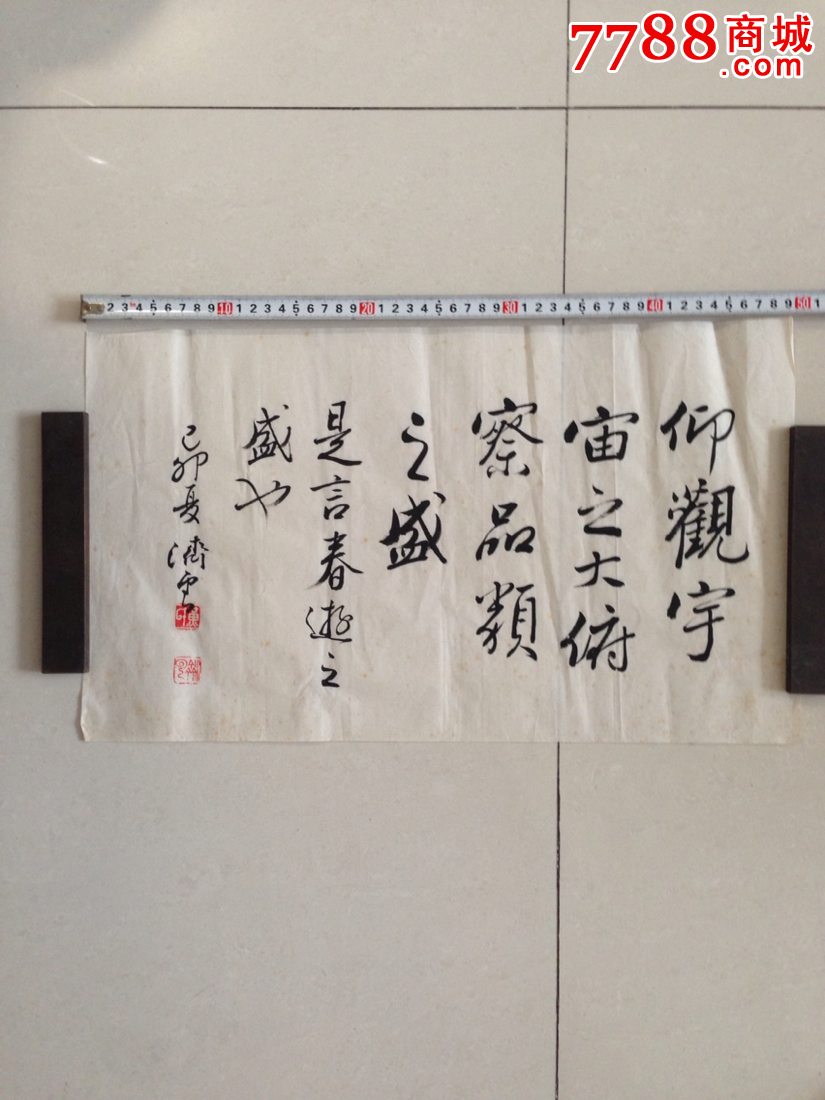 7788商城
.com
2 3 4 5 6 7 8 9 10 1 2 3 4 5 6 7 8 9 20 1 2 3 4 5 6 7 8 9 30 1 2 3 4 5 6 7 8 9 40 1 2 3 4 5 6 7 8 9 50 1
仰觀宇
宙之大俯
察品類
之盛
是言春遊之
盛也
己卯夏濟雲